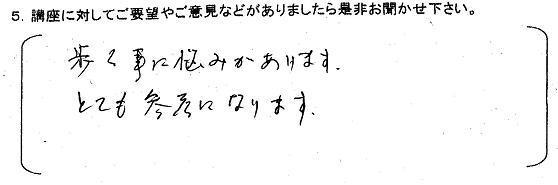 5. 講座に対してご要望やご意見などがありましたら是非お聞かせ下さい。
歩く事に悩みがあります.
とても参考になります.